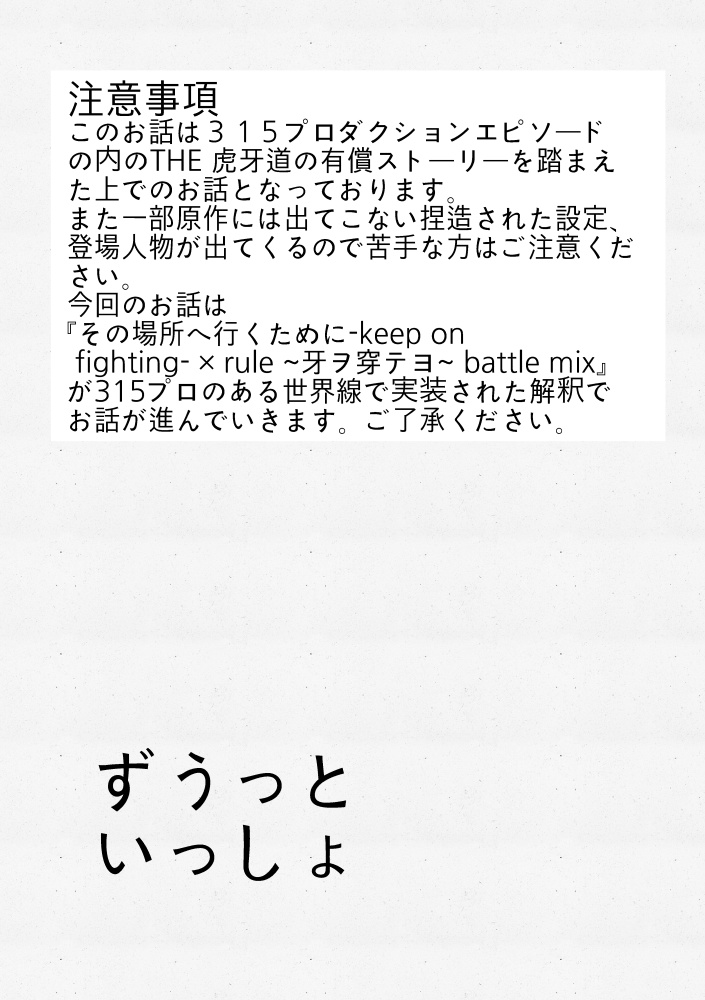 注意事項
このお話は３１５プロダクションエピソード
の内のTHE 虎牙道の有償ストーリーを踏まえ
た上でのお話となっております。
また一部原作には出てこない捏造された設定、
登場人物が出てくるので苦手な方はご注意くだ
さい。
今回のお話は
『その場所へ行くために-keep on
fighting- × rule ~牙ヲ穿テヨ~ battle mix』
が315プロのある世界線で実装された解釈で
お話が進んでいきます。ご了承ください。
ずうっと
いっしょ